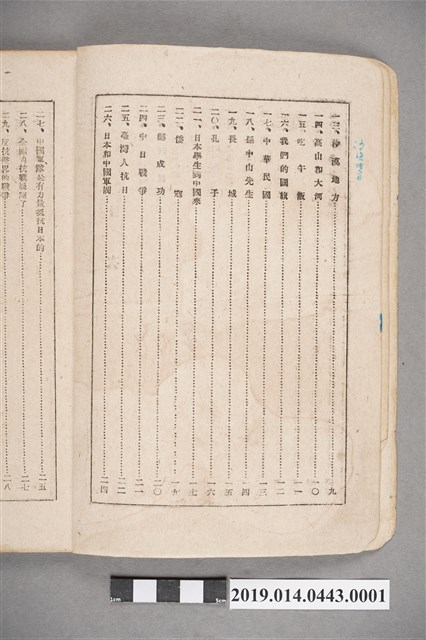 一三、沙漠地方⋯⋯九
一四、高山和大河⋯⋯一〇
一五、吃午飯⋯⋯一一
一六、我們的國旗⋯⋯一二
一七、中華民國⋯⋯一三
一八、孫中山先生⋯⋯一四
一九、長城⋯⋯一五
二〇、孔子⋯⋯一六
二一、日本學生到中國來⋯⋯一七
二二、倭寇⋯⋯一九
二三、鄭成功⋯⋯二〇
二四、中日戰爭⋯⋯二一
二五、臺灣人抗日⋯⋯二二
二六、日本和中國軍閥⋯⋯二四
二七、中國軍隊是有力量抵抗日本的⋯⋯二五
二八、抗戰⋯⋯二七
二九、世界的戰爭⋯⋯二八
1cm
5cm
2019.014.0443.0001